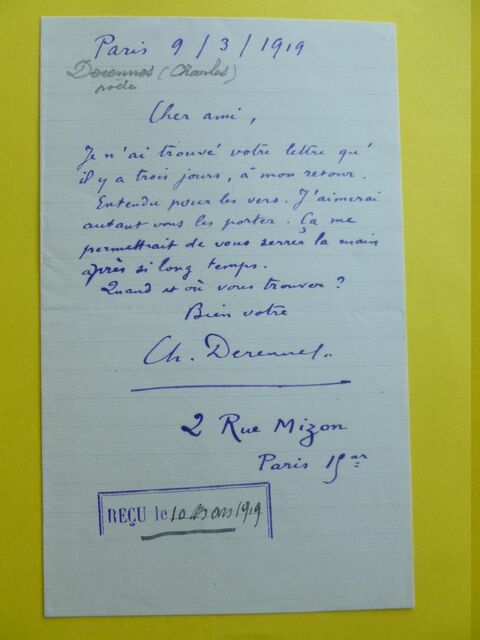 Paris 9/3/1919
Derennes (Charles)
poète
Cher ami,
Je n'ai trouvé votre lettre qu'
il y a trois jours, à mon retour.
Entendu pour les vers. J'aimerai
autant vous les porter. Ça me
permettrait de vous serrer la main
après si long temps.
Quand et où vous trouver ?
Bien votre
Ch. Derennes.
2 Rue Mizon
Paris 15 ar
REÇU le 10 Mars 1919